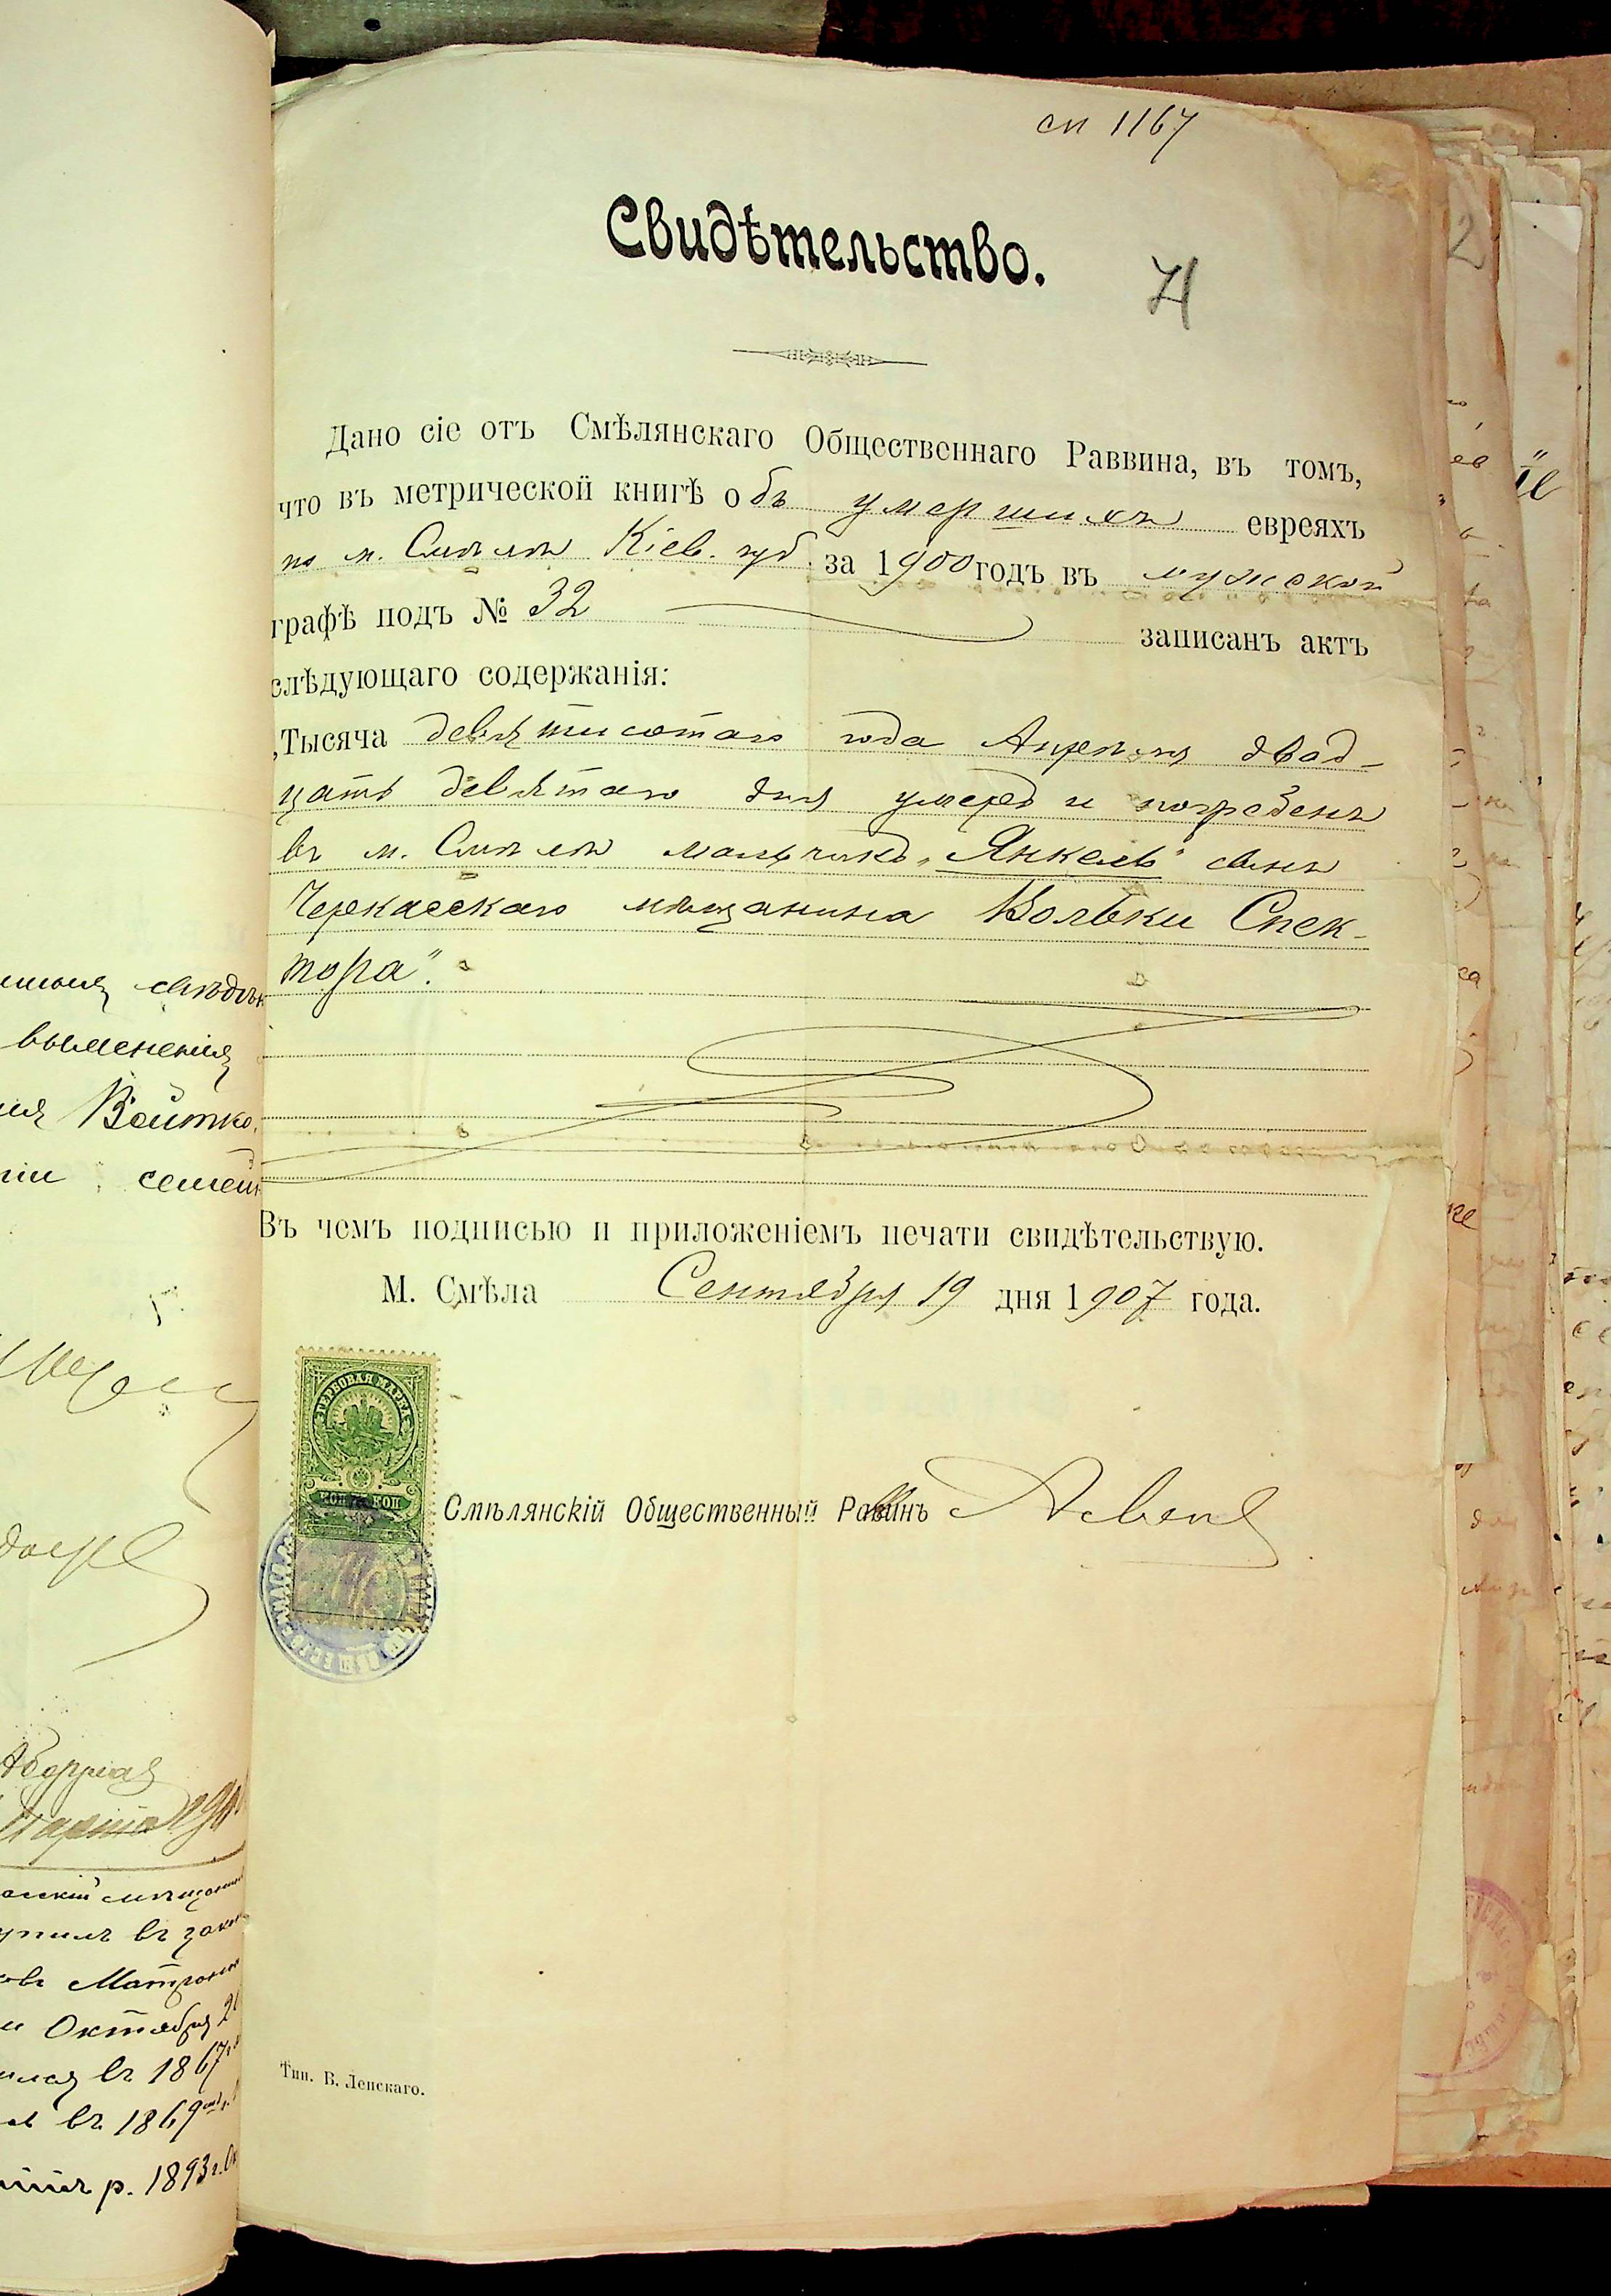 сп 1167
Свидѣтельство.
71
Дано сіе отъ Смѣлянскаго Общественнаго Раввина, въ томъ,
что въ метрической книгѣ объ умершихъ евреяхъ
по м. Смѣлѣ Кіев. губ. за 1900 годъ въ мужской
графѣ подъ № 32 записанъ актъ
слѣдующаго содержанія:
„Тысяча девятисотаго года Апрѣля двад-
цать девятаго дня умеръ и погребенъ
въ м. Смѣлѣ мальчикъ „Янкель" сынъ
Черкасскаго мѣщанина Вольки Спек-
тора".
Въ чемъ подписью и приложеніемъ печати свидѣтельствую.
М. Смѣла Сентября 19 дня 1907 года.
ГЕРБОВАЯ МАРКА
Смѣлянскій Общественный Равинъ
Тип. В. Ленскаго.
выясненія
Войтко
семей
Марта
въ зако
Октября
въ 1867
въ 1869
р. 1893 г.